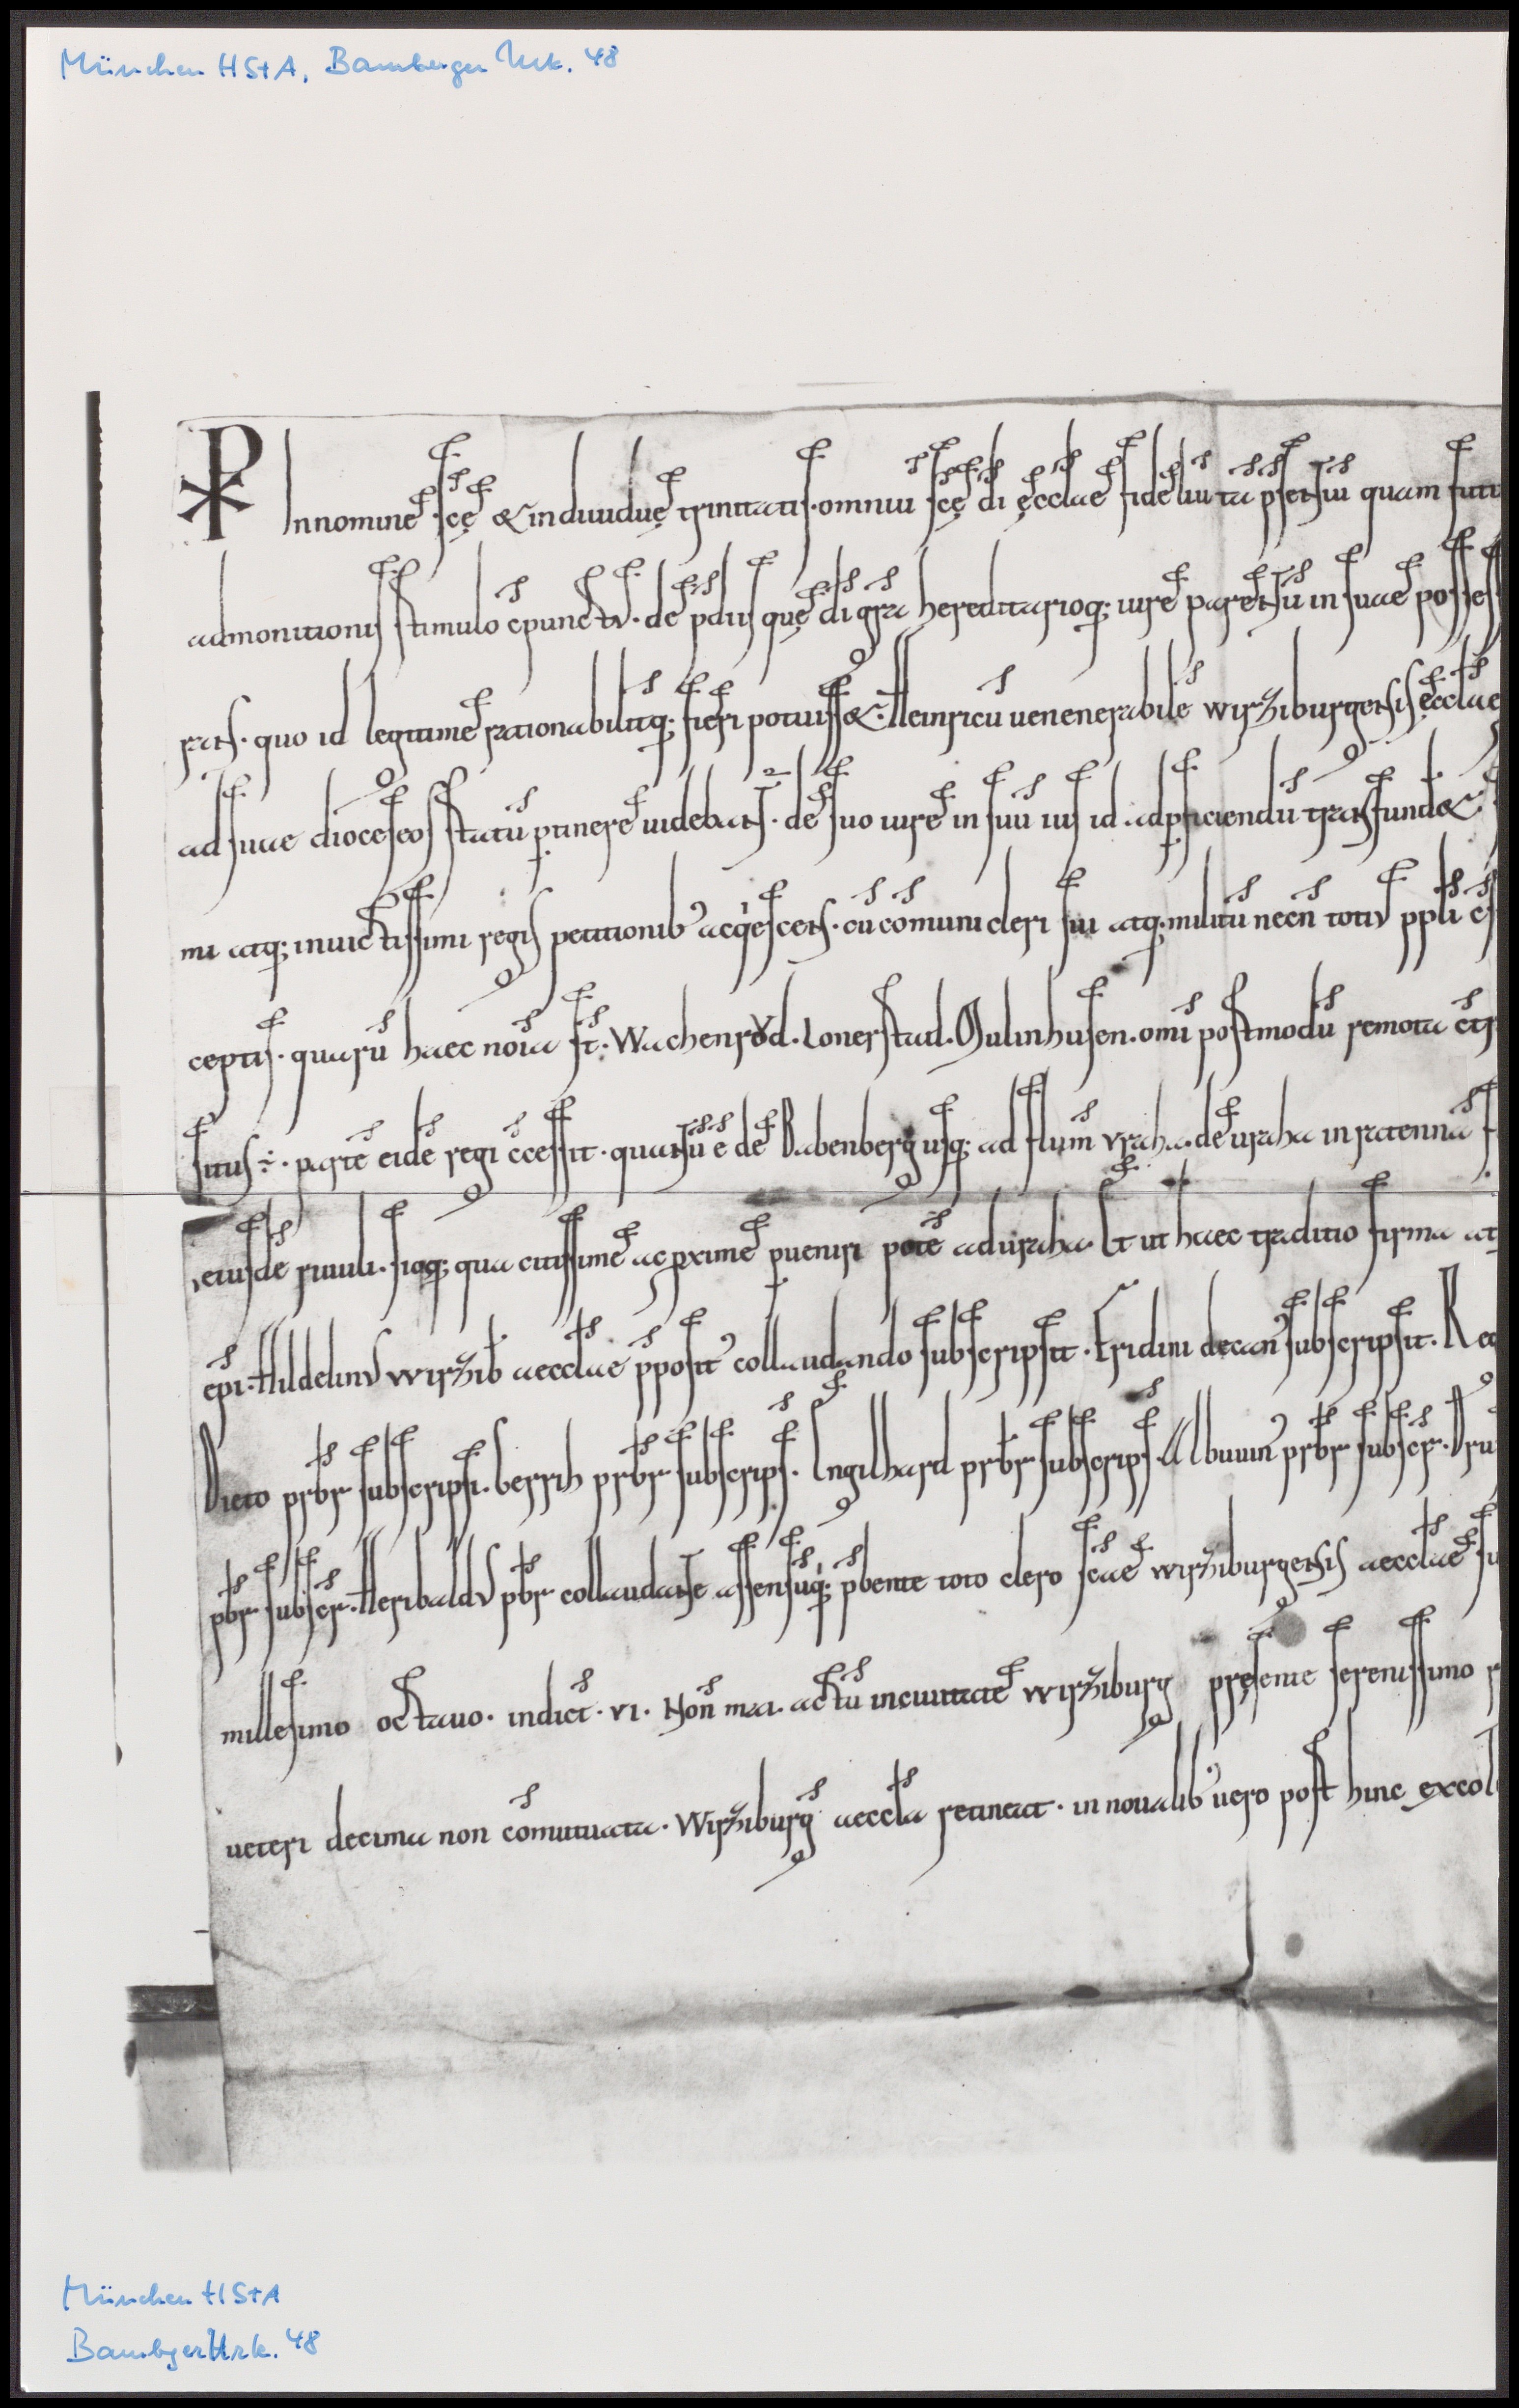 München HStA, Bamberger Urk. 48
In nomine sc̄ę & indiuiduę trinitatis. omniū sc̄ę dī ęcclae fidelium tā p̄sentiū quam futu
admonitionis stimulo c̄punctus. de p̄diis quę dī gr̄a hereditarioq; iure parentū in suae possess
rans. quo id legitime rationabilitq; fieri potuiss&. Heinricū uenenerabilē wirziburgensis ęcclae
ad suae dioceseos statū ꝑtinere uidebant. de suo iure in suū ius id adꝑficiendū transfund&.
mi atq; inuictissimi regis petitionib; acqⁱescens. cū comuni cleri sui atq; militū necn̄ totius ppl̄i c̄s
ceptis. quarū haec noīa st̄. Wachenrod. Lonerstad. Mulinhusen. om̄i postmodū remota c̄tr
situs ÷. partē eidē regi c̄cessit. quantū ē de Babenberg usq; ad flum̄ uraha. de uraha in ratenna
eiusdē riuuli. sicq; qua citissime ac ꝓxime ꝑueniri potē ad uraha. Et ut haec traditio firma at
ep̄i. Hildelinus wirzib̄ aecclae p̄posit' collaudando subscripsit. Eridini decan' subscripsit. Reg
Dieto pr̄br subscripsi. Berrih pr̄br subscrips̄. Engilhard pr̄br subscrips̄. Albuuin' pr̄br subscr̄. Dru
pb̄r subscr̄. Heribaldus pb̄r collaudante assensūq; p̄bente toto clero sc̄ae wirziburgensis aecclae su
millesimo octauo. indict̄. vi. Non̄ mai. actū in ciuitate wirziburg pręsente serenissimo r
ueteri decima non comutata. Wirziburḡ aeccl̄a retineat. in noualib' uero post hinc excol
München HStA
Bambger Urk. 48